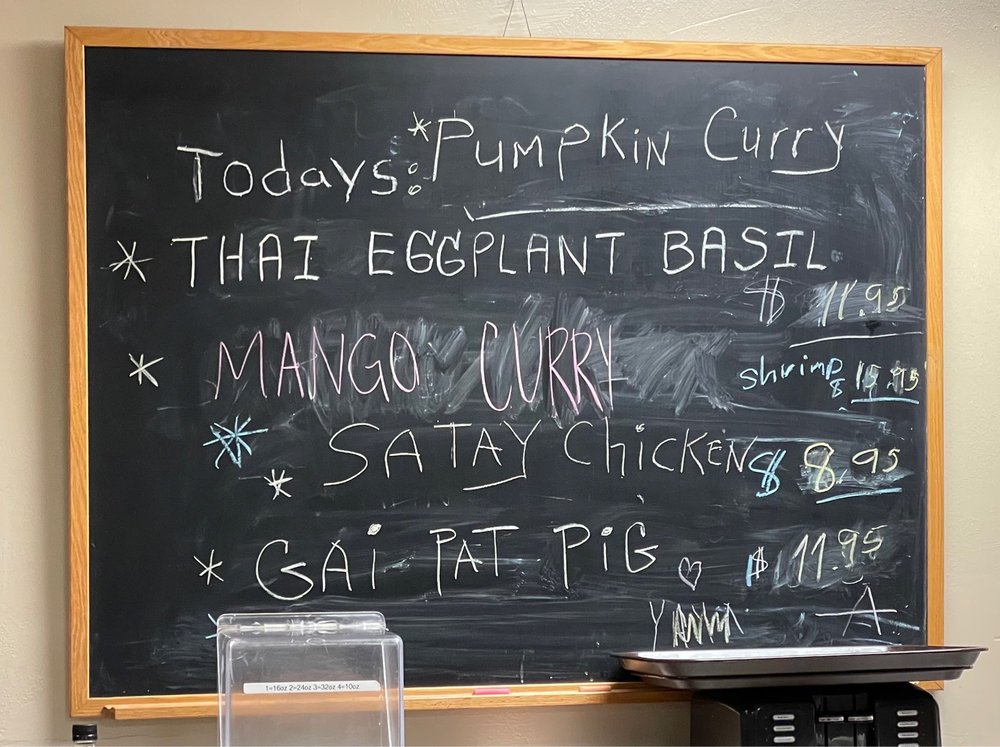 Todays: *Pumpkin Curry
* THAI EGGPLANT BASIL
$ 11.95
* MANGO CURRY
shrimp $ 15.95
* SATAY ChiCKEN $ 8.95
* GAi PAT PiG ♡ $ 11.95
A.
1=16oz 2=24oz 3=32oz 4=10oz